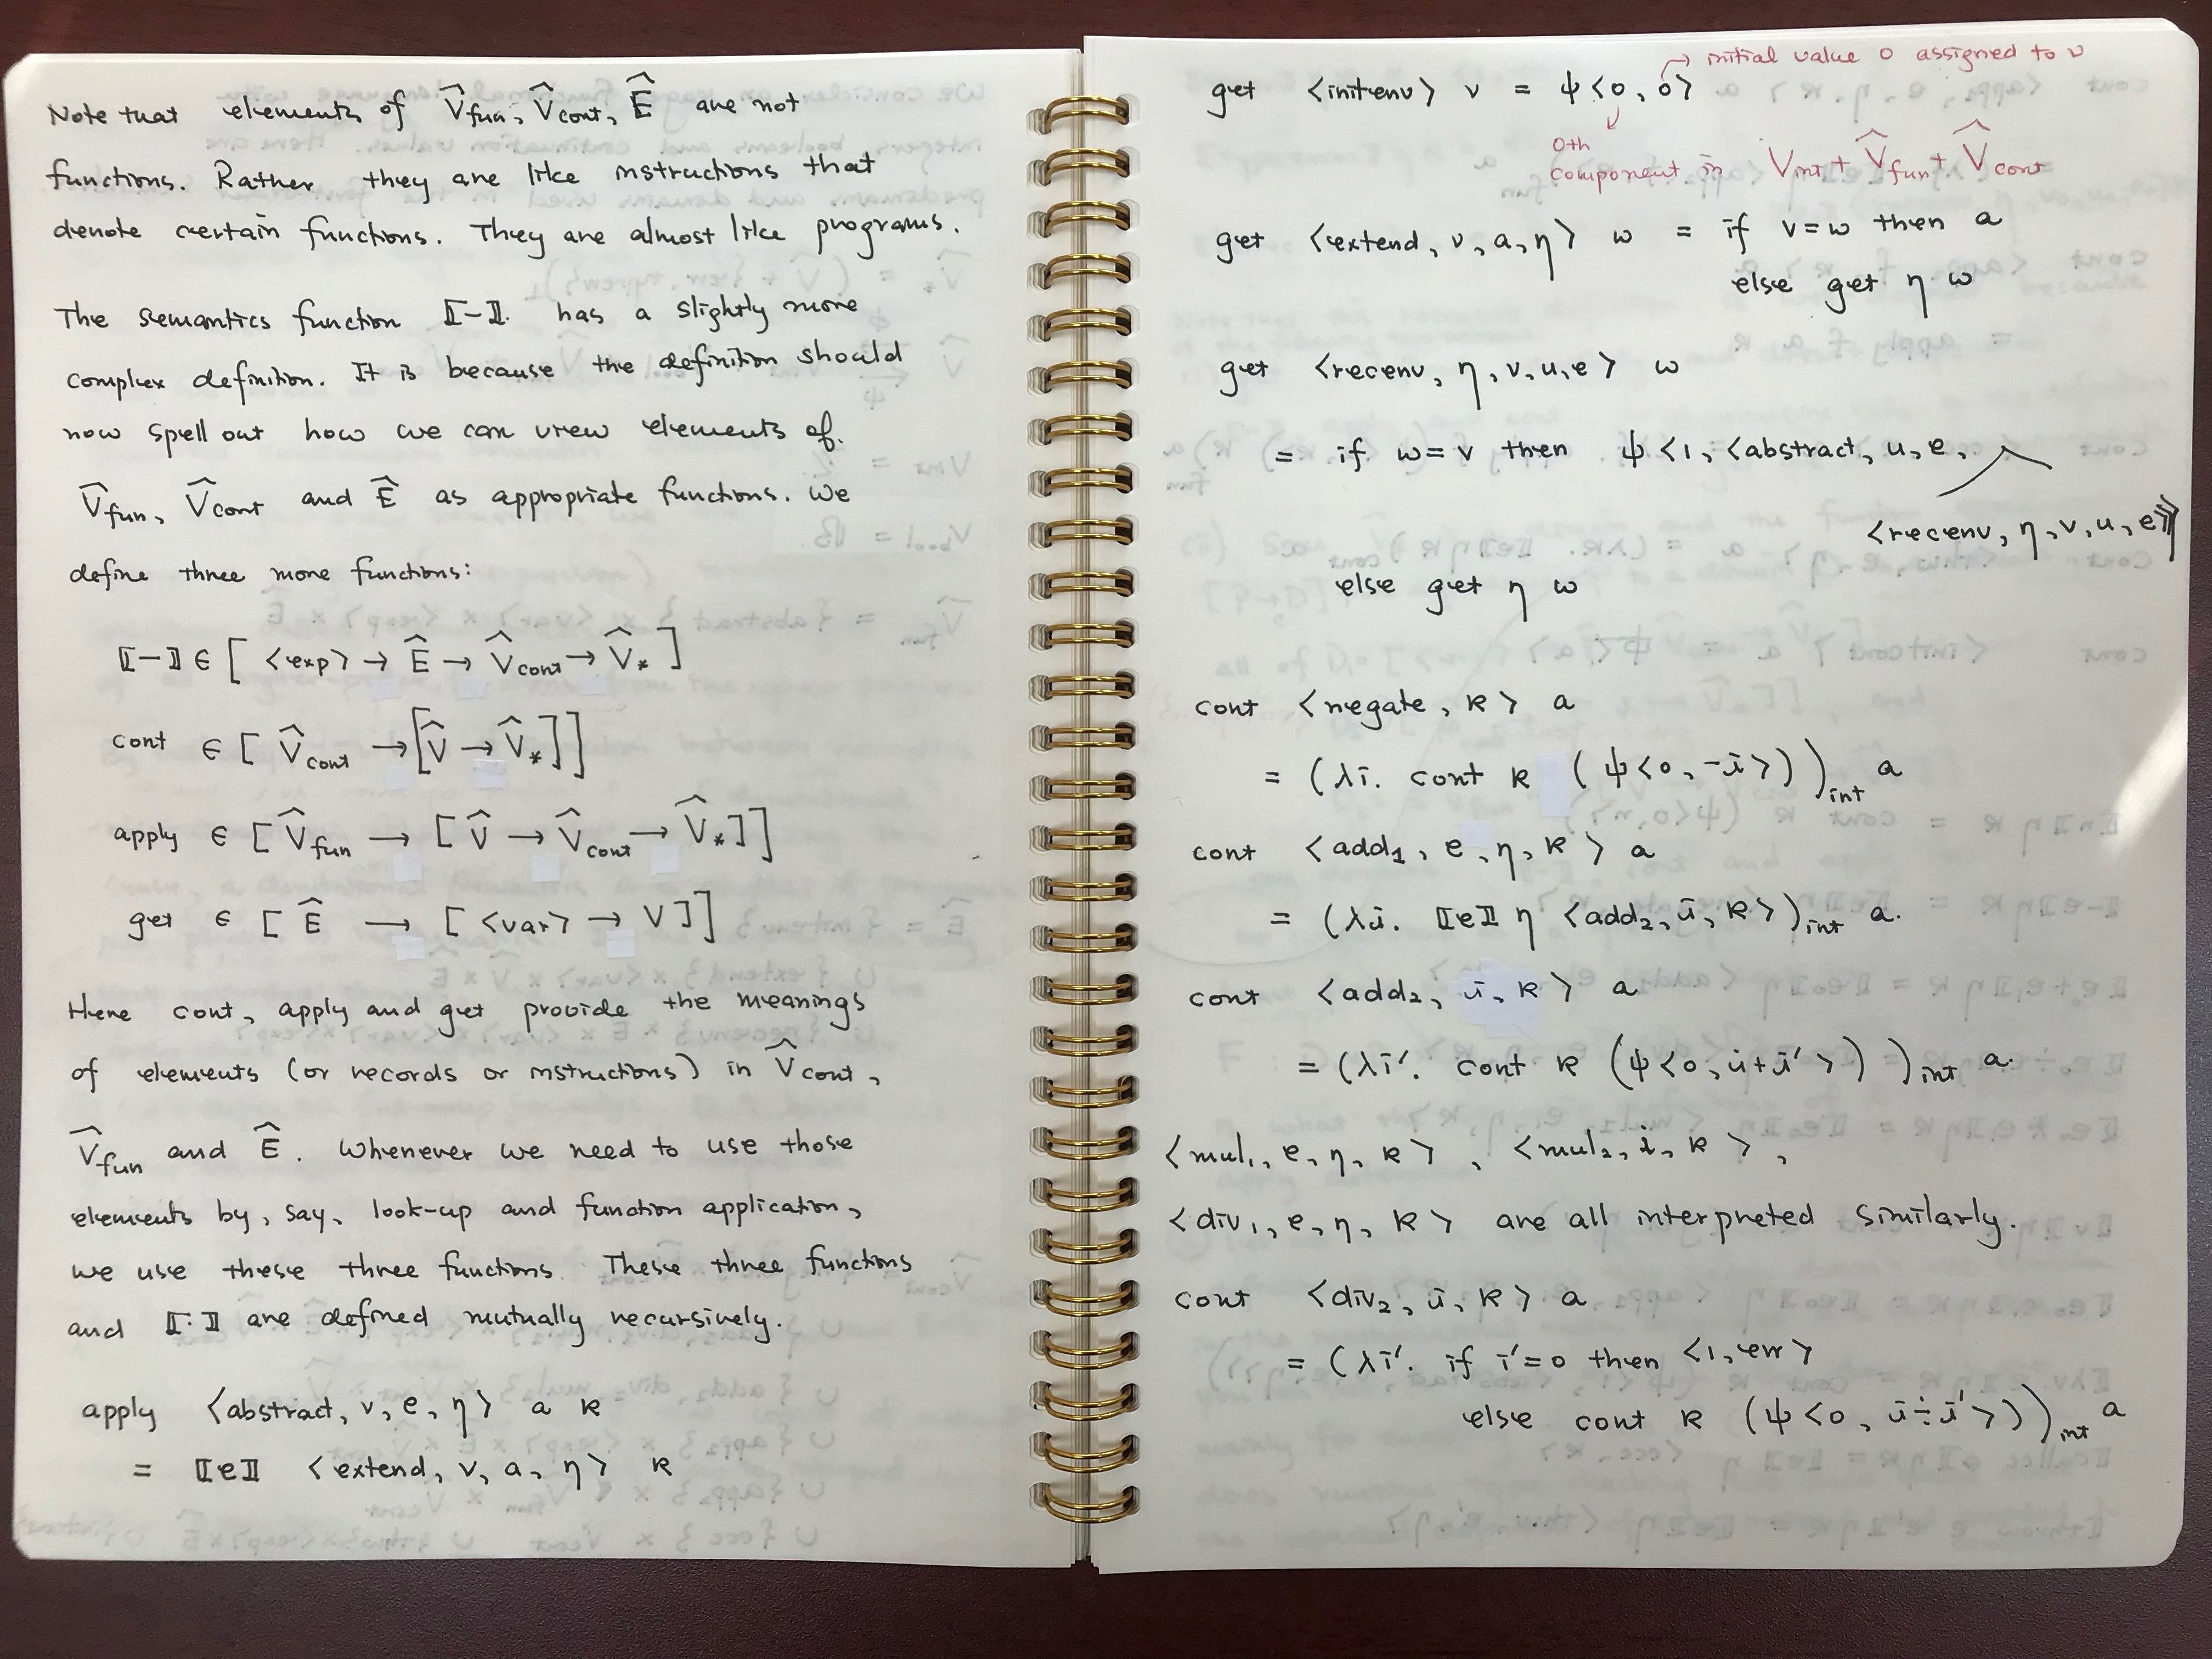 Note that elements of V̂fun, V̂cont, Ê are not
functions. Rather they are like instructions that
denote certain functions. They are almost like programs.
The semantics function ⟦-⟧ has a slightly more
complex definition. It is because the definition should
now spell out how we can view elements of
V̂fun, V̂cont and Ê as appropriate functions. We
define three more functions:
⟦-⟧ ∈ [ <exp> → Ê → V̂cont → V̂* ]
cont ∈ [ V̂cont → [V̂ → V̂*]]
apply ∈ [ V̂fun → [ V̂ → V̂cont → V̂*]]
get ∈ [ Ê → [ <var> → V ]]
Here cont, apply and get provide the meanings
of elements (or records or instructions) in V̂cont,
V̂fun and Ê. Whenever we need to use those
elements by, say, look-up and function application,
we use these three functions. These three functions
and ⟦·⟧ are defined mutually recursively.
apply <abstract, v, e, η> a κ
= ⟦e⟧ <extend, v, a, η> κ
→ initial value 0 assigned to v
get <initenv> v = ψ<0, 0>
0th
component in Vint + V̂fun + V̂cont
get <extend, v, a, η> w = if v=w then a
else get η w
get <recenv, η, v, u, e> w
= if w=v then ψ<1, <abstract, u, e,
<recenv, η, v, u, e>>>
else get η w
cont <negate, κ> a
= (λi. cont κ (ψ<0, -i>))int a
cont <add1, e, η, κ> a
= (λi. ⟦e⟧ η <add2, i, κ>)int a.
cont <add2, i, κ> a
= (λi'. cont κ (ψ<0, i+i'>))int a.
<mul1, e, η, κ>, <mul2, i, κ>,
<div1, e, η, κ> are all interpreted similarly.
cont <div2, i, κ> a
= (λi'. if i'=0 then <1, err>
else cont κ (ψ<0, i÷i'>))int a